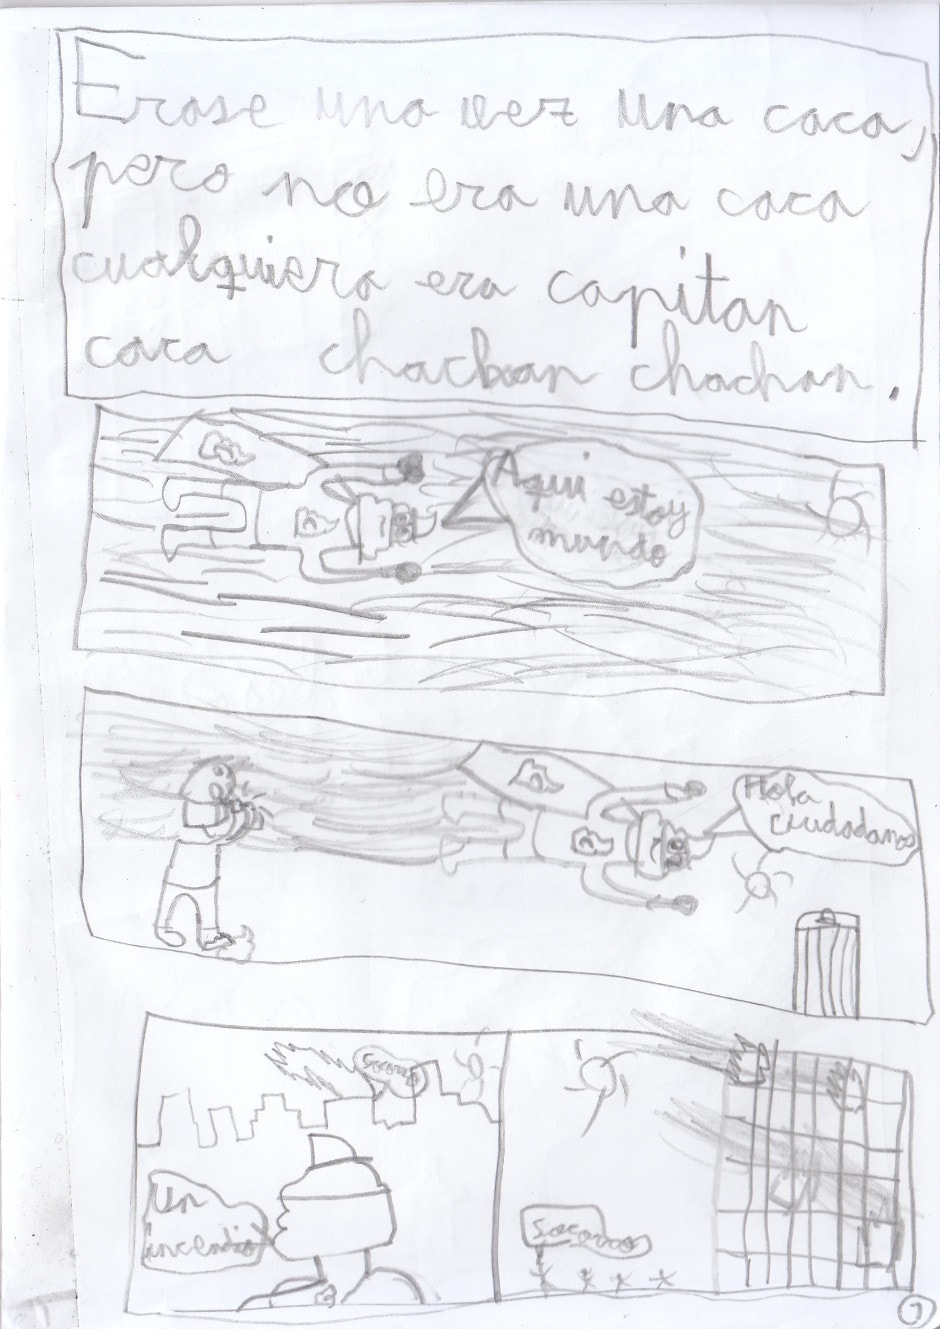 Erase una vez una caca,
pero no era una caca
cualquiera era capitan
caca chachan chachan.
Aqui estoy
mundo
Hola
ciudadanos
Socorro
Un
incendio
Socorros
1